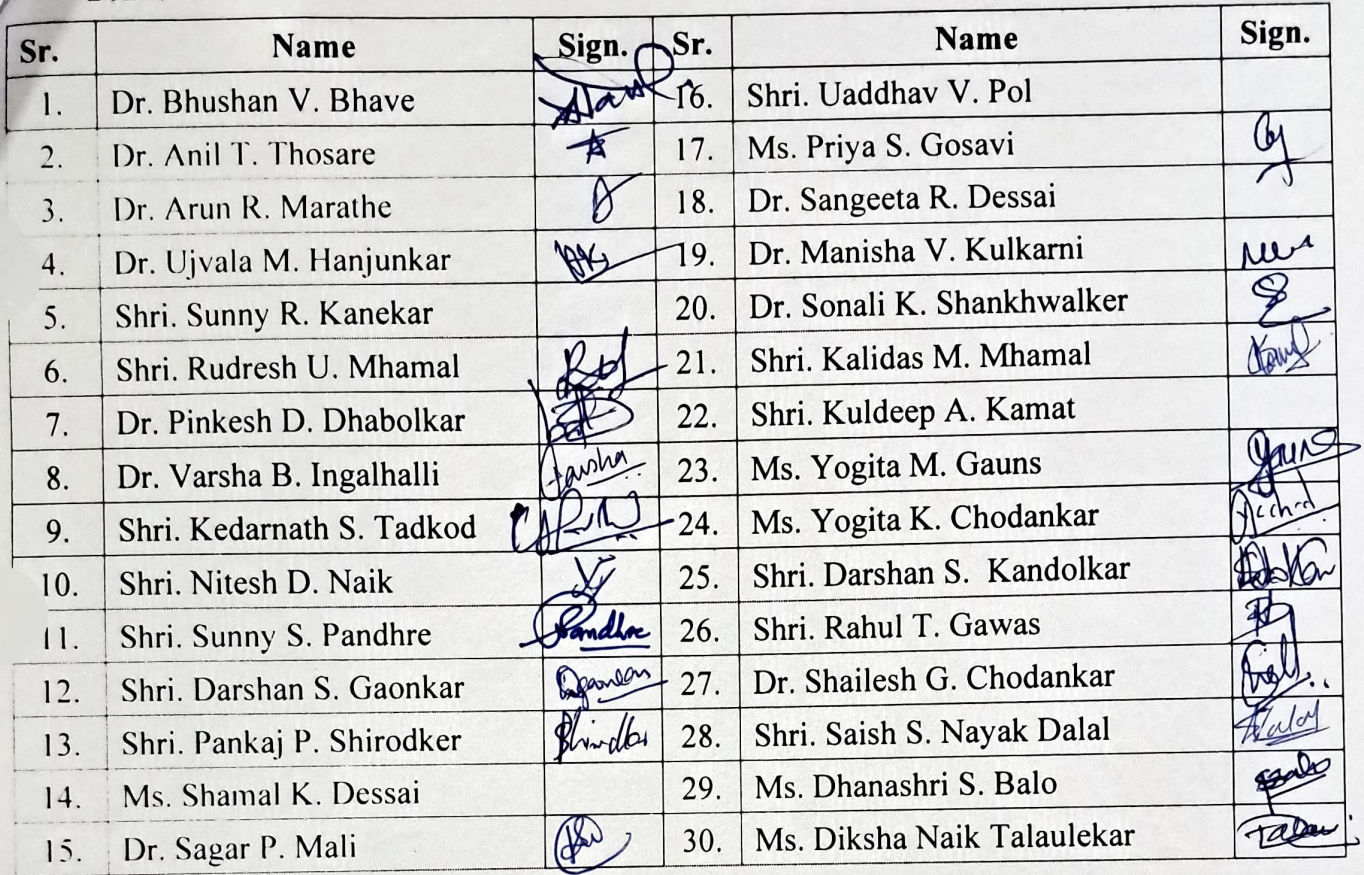 Sr. Name Sign. Sr. Name Sign.
1. Dr. Bhushan V. Bhave 16. Shri. Uaddhav V. Pol
2. Dr. Anil T. Thosare 17. Ms. Priya S. Gosavi
3. Dr. Arun R. Marathe 18. Dr. Sangeeta R. Dessai
4. Dr. Ujvala M. Hanjunkar 19. Dr. Manisha V. Kulkarni
5. Shri. Sunny R. Kanekar 20. Dr. Sonali K. Shankhwalker
6. Shri. Rudresh U. Mhamal 21. Shri. Kalidas M. Mhamal
7. Dr. Pinkesh D. Dhabolkar 22. Shri. Kuldeep A. Kamat
8. Dr. Varsha B. Ingalhalli Varsha 23. Ms. Yogita M. Gauns Gauns
9. Shri. Kedarnath S. Tadkod 24. Ms. Yogita K. Chodankar
10. Shri. Nitesh D. Naik 25. Shri. Darshan S. Kandolkar
11. Shri. Sunny S. Pandhre Pandhre 26. Shri. Rahul T. Gawas
12. Shri. Darshan S. Gaonkar 27. Dr. Shailesh G. Chodankar
13. Shri. Pankaj P. Shirodker 28. Shri. Saish S. Nayak Dalal Dalal
14. Ms. Shamal K. Dessai 29. Ms. Dhanashri S. Balo
15. Dr. Sagar P. Mali 30. Ms. Diksha Naik Talaulekar